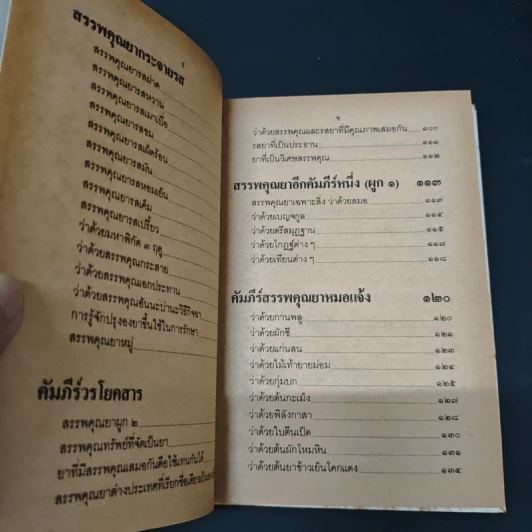 สรรพคุณยากระจายรส
สรรพคุณยารสฝาด
สรรพคุณยารสหวาน
สรรพคุณยารสเมาเบื่อ
สรรพคุณยารสขม
สรรพคุณยารสเผ็ดร้อน
สรรพคุณยารสมัน
สรรพคุณยารสหอมเย็น
สรรพคุณยารสเค็ม
สรรพคุณยารสเปรี้ยว
ว่าด้วยมหาพิกัด ๓ ฤดู
ว่าด้วยสรรพคุณกระสาย
ว่าด้วยสรรพคุณเอกประทาน
ว่าด้วยสรรพคุณอันนะปานะวิธีกิจฉา
การรู้จักปรุงองยาขึ้นใช้ในการรักษา
สรรพคุณยาหมู่
คัมภีร์วรโยคสาร
สรรพคุณยาผูก ๒
สรรพคุณทรัพย์ที่จัดเป็นยา
ยาที่มีสรรพคุณเสมอกันคือใช้แทนกันได้
สรรพคุณยาต่างประเทศที่เรียกชื่อเดียวมีในสรร
ว่าด้วยสรรพคุณและรสยาที่มีคุณภาพเสมอกัน ๑๐๐
รสยาที่เป็นประธาน ๑๑๑
ยาที่เป็นวิเศษสรรพคุณ ๑๑๒
สรรพคุณยาอีกคัมภีร์หนึ่ง (ผูก ๑) ๑๑๓
สรรพคุณยาเฉพาะสิ่ง ว่าด้วยสมอ ๑๑๓
ว่าด้วยเบญจกูล ๑๑๔
ว่าด้วยตรีสมุฏฐาน ๑๑๕
ว่าด้วยโกฏฐ์ต่าง ๆ ๑๑๗
ว่าด้วยเทียนต่าง ๆ ๑๑๘
คัมภีร์สรรพคุณยาหมอแจ้ง ๑๒๐
ว่าด้วยกานพลู ๑๒๐
ว่าด้วยผักชี ๑๒๑
ว่าด้วยแก่นสน ๑๒๓
ว่าด้วยไม้เท้ายายม่อม ๑๒๔
ว่าด้วยกุ่มบก ๑๒๕
ว่าด้วยต้นกะเม็ง ๑๒๗
ว่าด้วยพิลังกาสา ๑๒๘
ว่าด้วยใบตีนเป็ด ๑๓๐
ว่าด้วยต้นผักโหมหิน ๑๓๑
ว่าด้วยต้นยาข้าวเย็นโคกแดง ๑๓๔